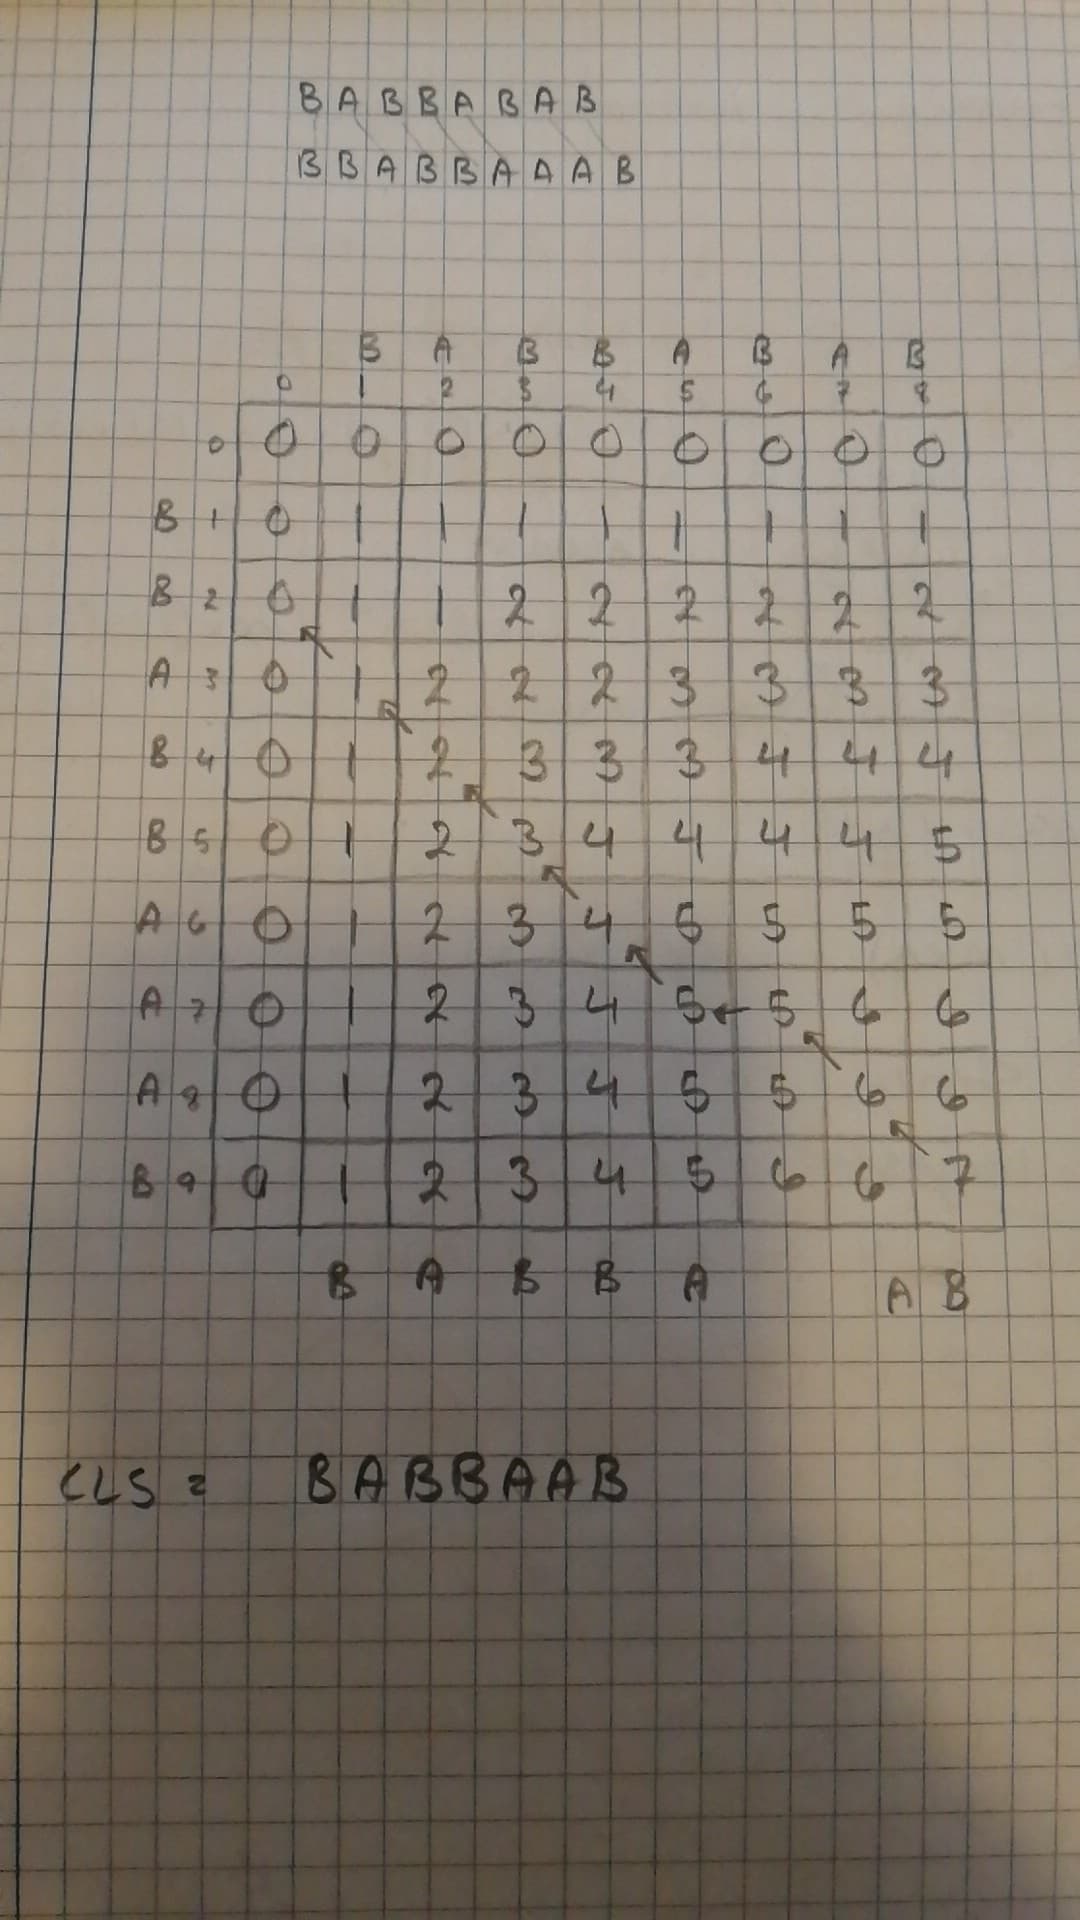 B A B B A B A B
B B A B B A A A B
B A B B A B A B
0 1 2 3 4 5 6 7 8
0 0 0 0 0 0 0 0 0 0
B 1 0 1 1 1 1 1 1 1 1
B 2 0 1 1 2 2 2 2 2 2
A 3 0 1 2 2 2 3 3 3 3
B 4 0 1 2 3 3 3 4 4 4
B 5 0 1 2 3 4 4 4 4 5
A 6 0 1 2 3 4 5 5 5 5
A 7 0 1 2 3 4 5 ← 5 6 6
A 8 0 1 2 3 4 5 5 6 6
B 9 0 1 2 3 4 5 6 6 7
B A B B A A B
CLS = BABBAAB